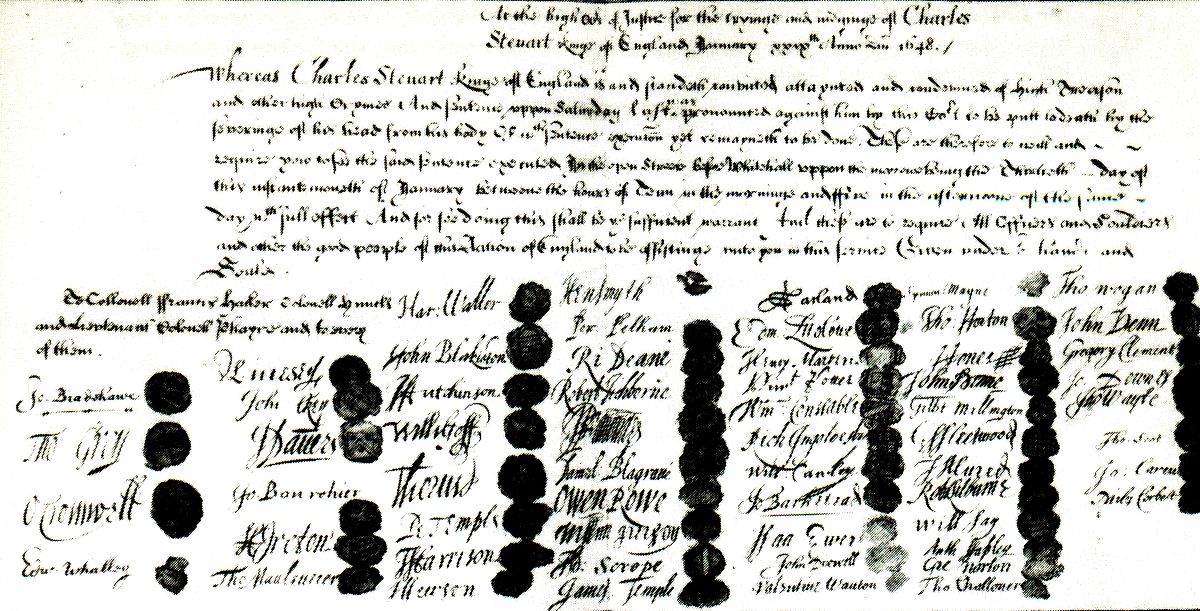 At the high Cort of Justice for the tryinge and iudginge of Charles
Steuart Kinge of England January xxixth Anno Dni 1648./
Whereas Charles Steuart Kinge of England is and standeth convicted attaynted and condemned of High Treason
and other high Crymes And sentence uppon Saturday last was pronounced against him by this Cort to be putt to death by the
severinge of his head from his body Of wch sentence execucon yet remayneth to be done These are therefore to will and
require you to see the said sentence executed In the open Streete before Whitehall uppon the morrowe being the Thirtieth day of
this instante moneth of January betweene the houres of Tenn in the morninge and ffive in the afternoone of the same
day wth full effect And for soe doing this shall be yor sufficient warrant And these are to require All Officers and Souldiers
and other the good people of this Nation of England to be assistinge unto you in this service Given under our hands and
Seales
To Collonell ffrancis Hacker Colonell Huncks
and Lieutenant Colonell Phayre and to every
of them.
Jo Bradshawe
Tho Grey
O Cromwell
Edw Whalley
M Livesey
John Okey
J Danvers
Jo Bourchier
H Ireton
Tho Mauleverer
Har Waller
John Blakiston
J Hutchinson
Willi Goff
Tho Pride
Pe Temple
T Harrison
J Hewson
Hen Smyth
Per Pelham
Ri Deane
Robert Tichborne
H Edwardes
Daniel Blagrave
Owen Rowe
William Purefoy
Ad: Scrope
James Temple
A Garland
Edm Ludlowe
Henry Marten
Vint Potter
Wm Constable
Rich Ingoldesby
Will Cawley
Jo Barkstead
Isaa Ewer
John Dixwell
Valentine Wauton
Symon Mayne
Tho Horton
J Jones
John Moore
Gilbt Millington
G Fleetwood
J Alured
Rob Lilburne
Will Say
Anth Stapley
Gre Norton
Tho Challoner
Tho Wogan
John Venn
Gregory Clement
Jo Downes
Tho Wayte
Tho Scot
Jo Carew
Miles Corbet